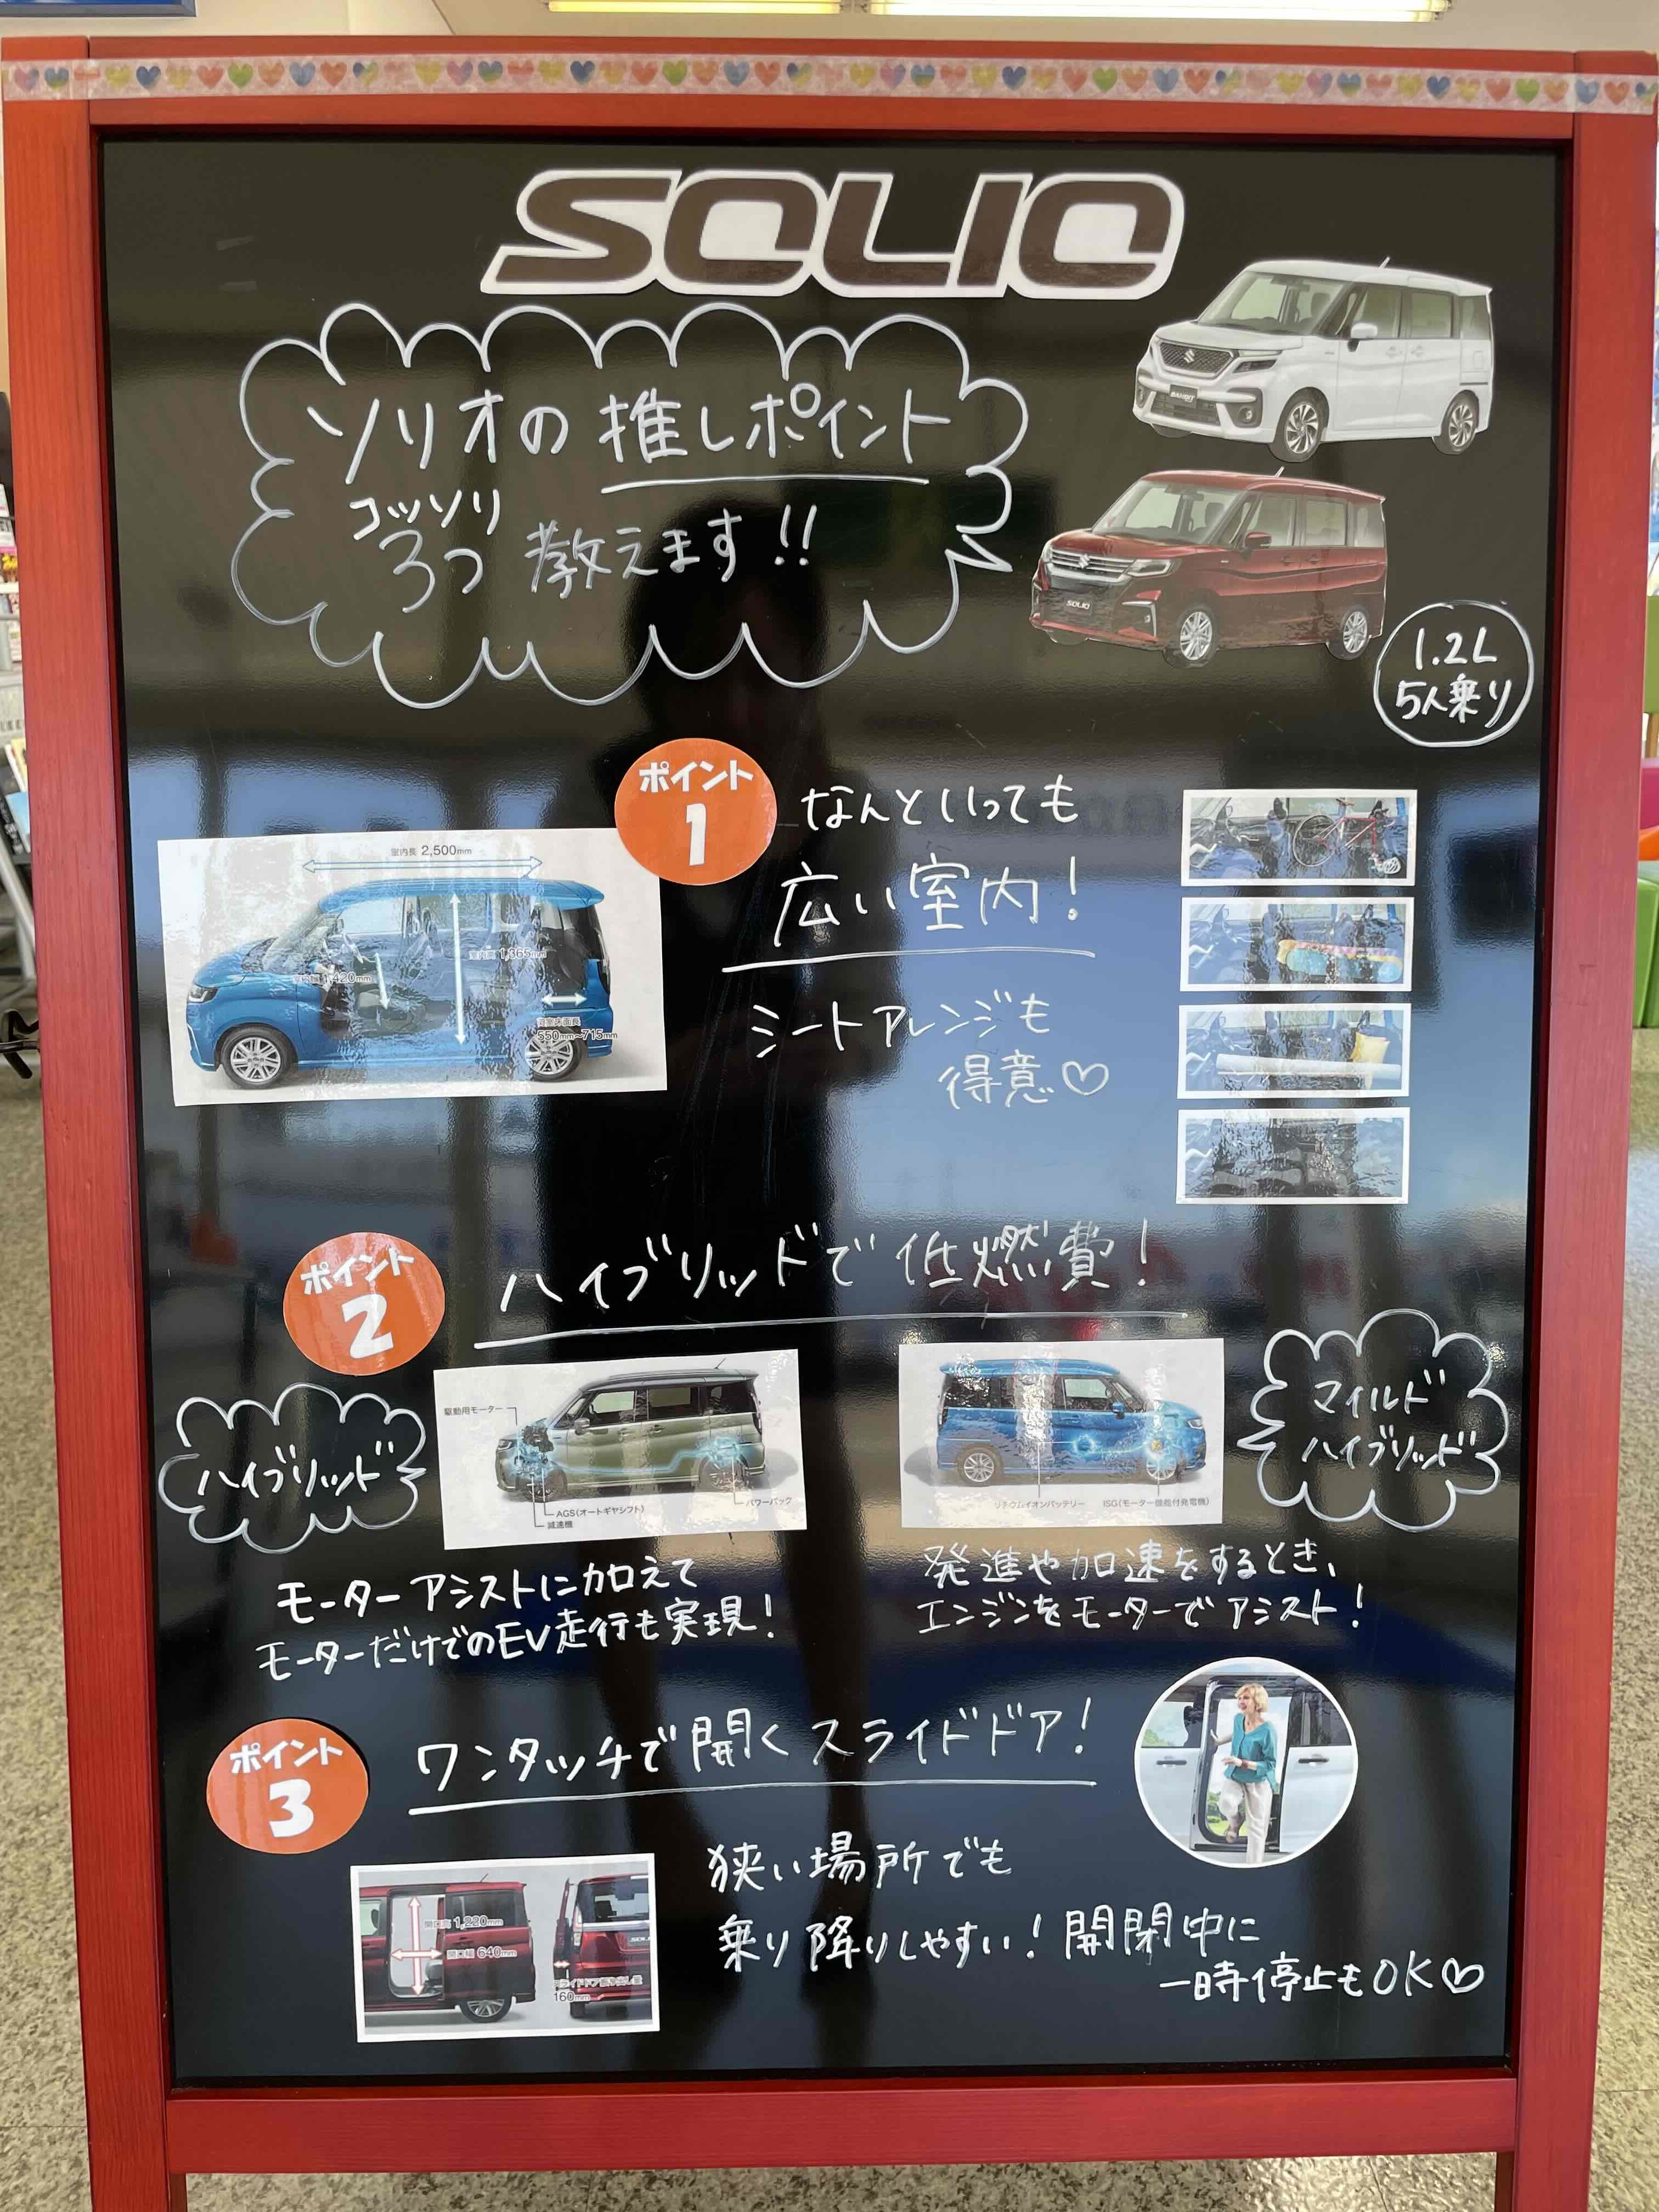 SOLIO
ソリオの推しポイント
コッソリ
3つ 教えます!!
BANDIT
SOLIO
1.2L
5人乗り
ポイント
1
なんといっても
広い室内!
シートアレンジも
得意♡
室内長 2,500mm
室内高 1,365mm
室内幅 1,420mm
荷室床面長
550mm~715mm
ポイント
2
ハイブリッドで低燃費!
ハイブリッド
駆動用モーター
AGS(オートギヤシフト)
減速機
パワーパック
モーターアシストに加えて
モーターだけでのEV走行も実現!
マイルド
ハイブリッド
リチウムイオンバッテリー
ISG(モーター機能付発電機)
発進や加速をするとき、
エンジンをモーターでアシスト!
ポイント
3
ワンタッチで開くスライドドア!
開口高 1,220mm
開口幅 640mm
スライドドア張り出し量
160mm
狭い場所でも
乗り降りしやすい!開閉中に
一時停止もOK♡